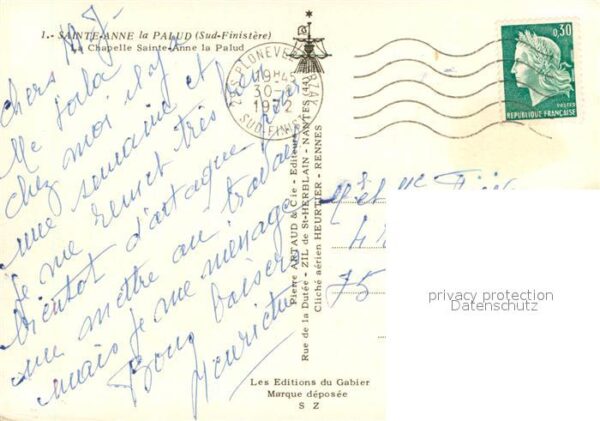 1.- SAINTE-ANNE la PALUD (Sud-Finistère)
La Chapelle Sainte-Anne la Palud
Chers M J-
Me voilà
chez moi il y a
une semaine et
je me remet très bien
bientôt d'attaque pour
me mettre au travail
mais je me ménage
Bons baisers
Henriette
PLONEVEZ PORZAY
19H45
30-
1972
SUD-FINIST
0,30
POSTES
REPUBLIQUE FRANÇAISE
Pierre ARTAUD & Cie - Editeurs
Rue de la Dutée - ZIL de St-HERBLAIN - NANTES (44)
Cliché aérien HEURTIER - RENNES
Mr et Mme
75
privacy protection
Datenschutz
Les Editions du Gabier
Marque déposée
S Z